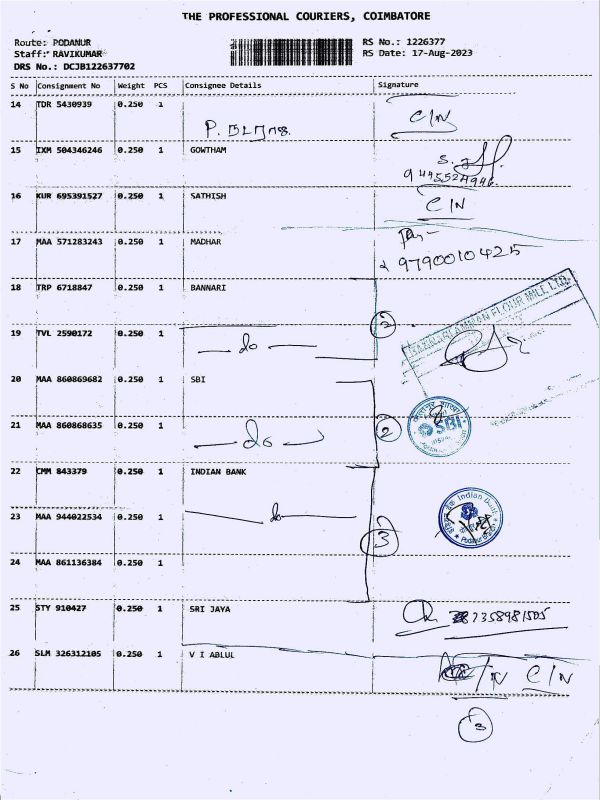 THE PROFESSIONAL COURIERS, COIMBATORE
Route: PODANUR
Staff: RAVIKUMAR
DRS No.: DCJB122637702
RS No.: 1226377
RS Date: 17-Aug-2023
S No Consignment No Weight PCS Consignee Details Signature
14 TDR 5430939 0.250 1 C/N
15 IXM 504346246 0.250 1 GOWTHAM
16 KUR 695391527 0.250 1 SATHISH C/N
17 MAA 571283243 0.250 1 MADHAR
9790010425
18 TRP 6718847 0.250 1 BANNARI
2
BANNARIAMMAN FLOUR MILL LTD.
19 TVL 2590172 0.250 1 do
20 MAA 860869682 0.250 1 SBI
SBI
21 MAA 860868635 0.250 1 do 2
22 CMM 843379 0.250 1 INDIAN BANK
Indian Bank
Podanur Branch
23 MAA 944022534 0.250 1 do
3
24 MAA 861136384 0.250 1
25 STY 910427 0.250 1 SRI JAYA 7358981505
26 SLM 326312105 0.250 1 V I ABLUL C/N
3